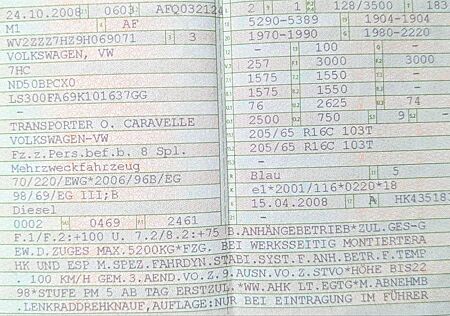 24.10.2008 0603 AFQ032124
M1 AF
WV2ZZZ7HZ9H069071 3
VOLKSWAGEN, VW
7HC
ND50BPCX0
LS300FA69K101637GG
-
TRANSPORTER O. CARAVELLE
VOLKSWAGEN-VW
Fz.z.Pers.bef.b. 8 Spl.
Mehrzweckfahrzeug
70/220/EWG*2006/96B/EG
98/69/EG III;B
Diesel
0002 0469 2461
2 1 128/3500 183
5290-5389 1904-1904
1970-1990 1980-2220
- 100 -
257 3000 3000
1575 1550 -
1575 1550 -
76 2625 74
2500 750 9 -
205/65 R16C 103T
205/65 R16C 103T
-
Blau 5
e1*2001/116*0220*18
15.04.2008 A HK43518
F.1/F.2:+100 U. 7.2/8.2:+75 B.ANHÄNGEBETRIEB*ZUL.GES-G
EW.D.ZUGES MAX.5200KG*FZG. BEI WERKSSEITIG MONTIERTERA
HK UND ESP M.SPEZ.FAHRDYN.STABI.SYST.F.ANH.BETR.F.TEMP
. 100 KM/H GEM.3.AEND.VO.Z.9.AUSN.VO.Z.STVO*HÖHE BIS22
98*STUFE PM 5 AB TAG ERSTZUL.*WW.AHK LT.EGTG*M.ABNEHMB
.LENKRADDREHKNAUF,AUFLAGE:NUR BEI EINTRAGUNG IM FÜHRER